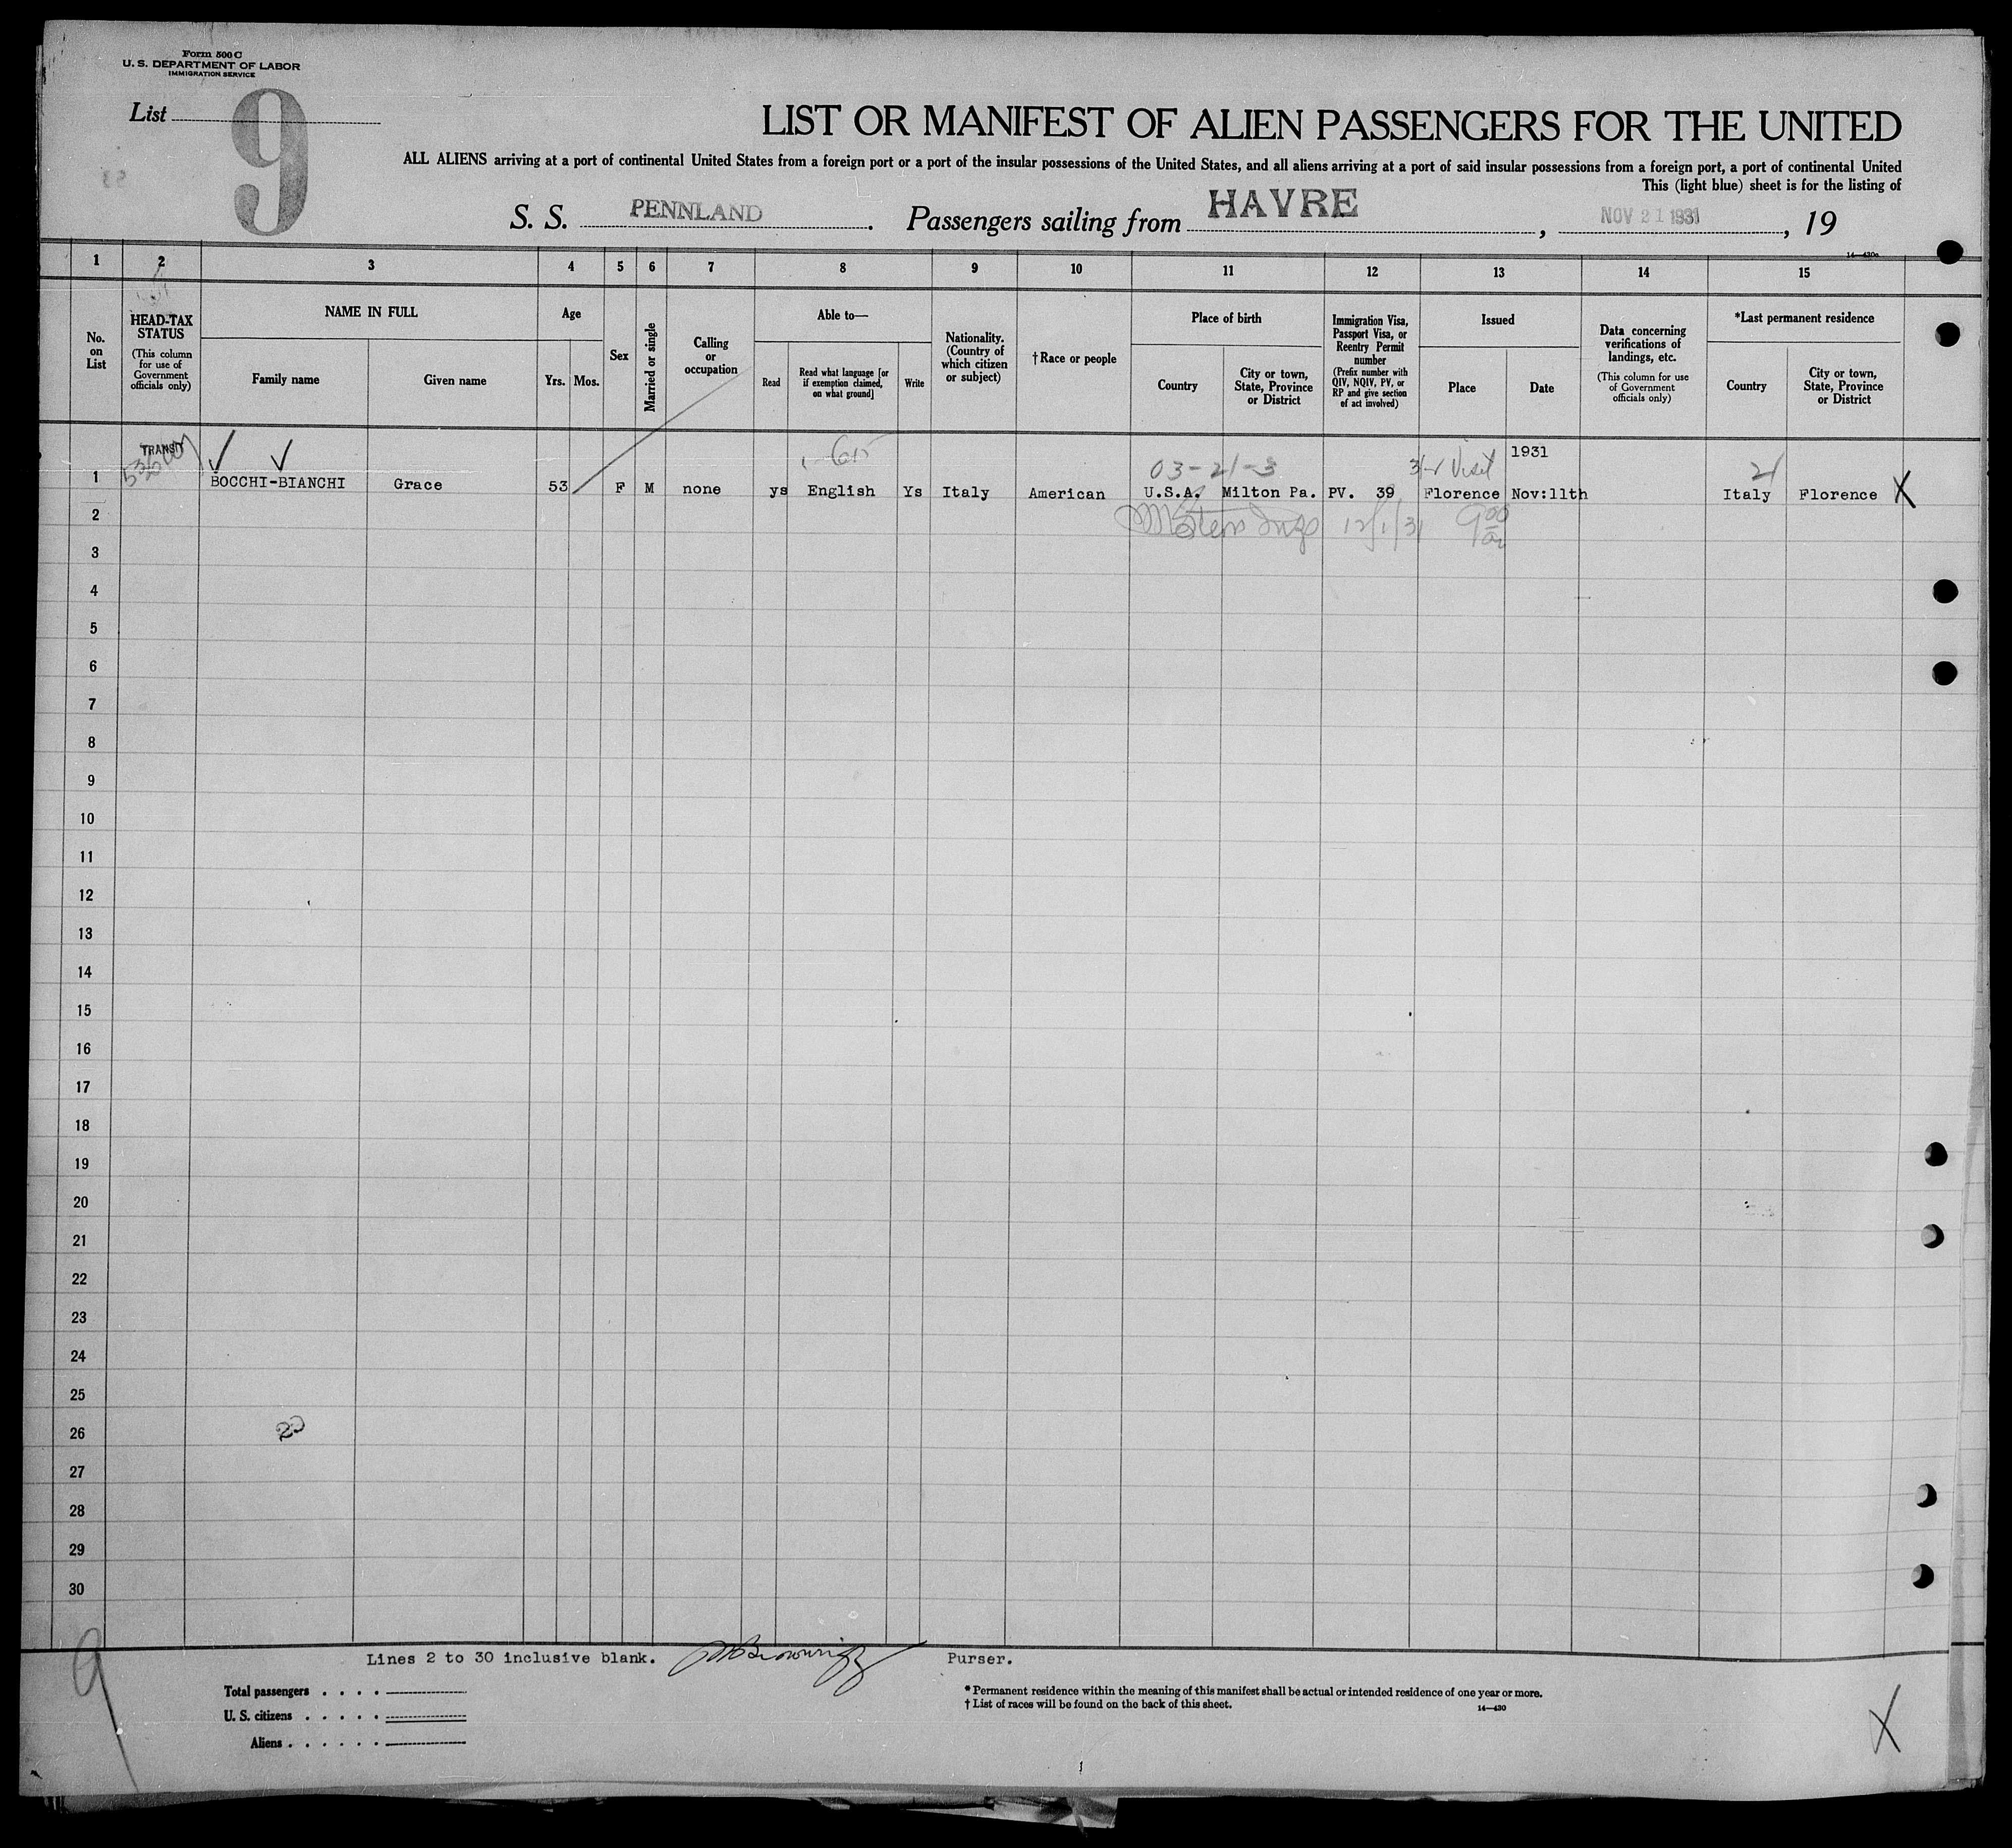 Form 500 C
U. S. DEPARTMENT OF LABOR
IMMIGRATION SERVICE
List
9
LIST OR MANIFEST OF ALIEN PASSENGERS FOR THE UNITED
ALL ALIENS arriving at a port of continental United States from a foreign port or a port of the insular possessions of the United States, and all aliens arriving at a port of said insular possessions from a foreign port, a port of continental United
This (light blue) sheet is for the listing of
S. S. PENNLAND. Passengers sailing from HAVRE, NOV 21 1931, 19
14—430a
1 2 3 4 5 6 7 8 9 10 11 12 13 14 15
No. on List
HEAD-TAX STATUS
(This column for use of Government officials only)
NAME IN FULL
Family name Given name
Age
Yrs. Mos.
Sex
Married or single
Calling or occupation
Able to—
Read
Read what language [or if exemption claimed, on what ground]
Write
Nationality. (Country of which citizen or subject)
†Race or people
Place of birth
Country
City or town, State, Province or District
Immigration Visa, Passport Visa, or Reentry Permit number
(Prefix number with QIV, NQIV, PV, or RP and give section of act involved)
Issued
Place Date
Data concerning verifications of landings, etc.
(This column for use of Government officials only)
*Last permanent residence
Country
City or town, State, Province or District
TRANSIT
03-21-3 Visit 1931 21
1 BOCCHI-BIANCHI Grace 53 F M none ys English Ys Italy American U.S.A. Milton Pa. PV. 39 Florence Nov:11th Italy Florence X
12/1/31 9 00
2
3
4
5
6
7
8
9
10
11
12
13
14
15
16
17
18
19
20
21
22
23
24
25
26
27
28
29
30
9
Lines 2 to 30 inclusive blank. Purser.
Total passengers
U. S. citizens
Aliens
* Permanent residence within the meaning of this manifest shall be actual or intended residence of one year or more.
† List of races will be found on the back of this sheet.
14—430
X